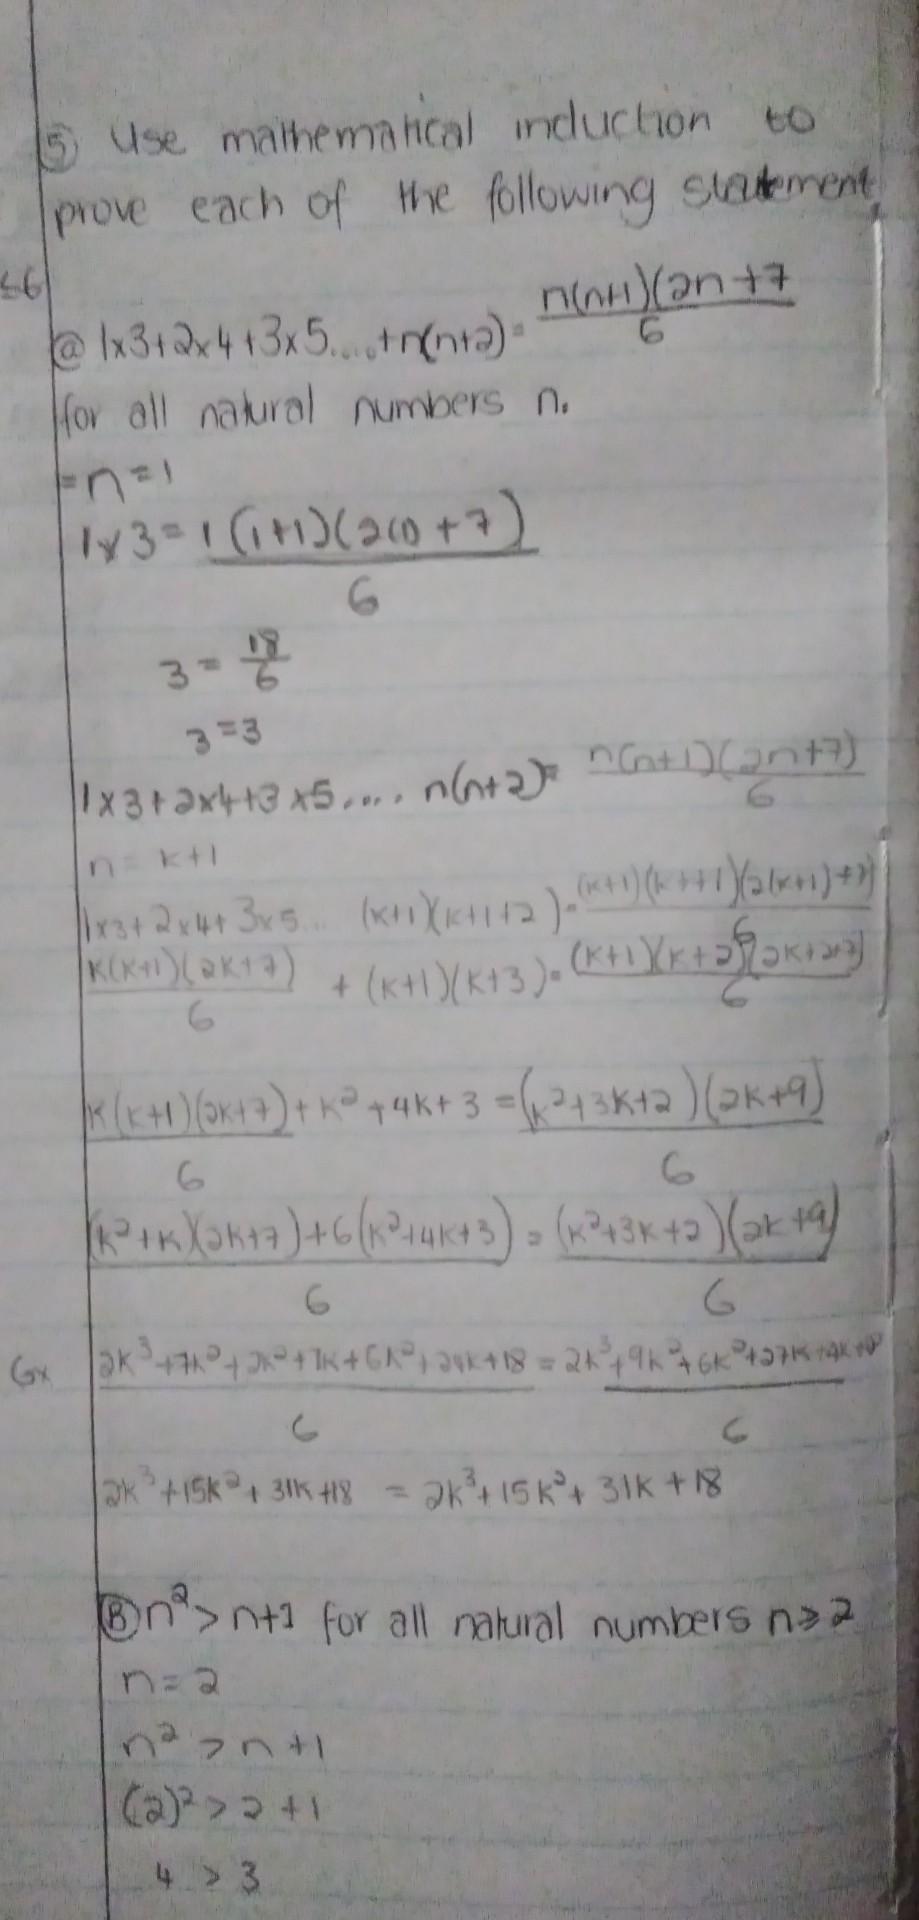 ⑤ Use mathematical induction to
prove each of the following statement
56
ⓐ 1x3+2x4+3x5....+n(n+2)= n(n+1)(2n+7 / 6
for all natural numbers n.
=n=1
1x3= 1(1+1)(2(1)+7) / 6
3 = 18/6
3=3
1x3+2x4+3x5.... n(n+2)= n(n+1)(2n+7) / 6
n=k+1
1x3+2x4+3x5... (k+1)(k+1+2)= (k+1)(k+1+1)(2(k+1)+7) / 6
k(k+1)(2k+7) / 6 + (k+1)(k+3)= (k+1)(k+2)(2k+2+7) / 6
k(k+1)(2k+7) / 6 + k²+4k+3 = (k²+3k+2)(2k+9) / 6
(k²+k)(2k+7)+6(k²+4k+3) / 6 = (k²+3k+2)(2k+9) / 6
6x 2k³+7k²+2k²+7k+6k²+24k+18 / 6 = 2k³+9k²+6k²+27k+4k+18 / 6
2k³+15k²+31k+18 = 2k³+15k²+31k+18
Ⓑ n²>n+1 for all natural numbers n≥2
n=2
n²>n+1
(2)²>2+1
4>3